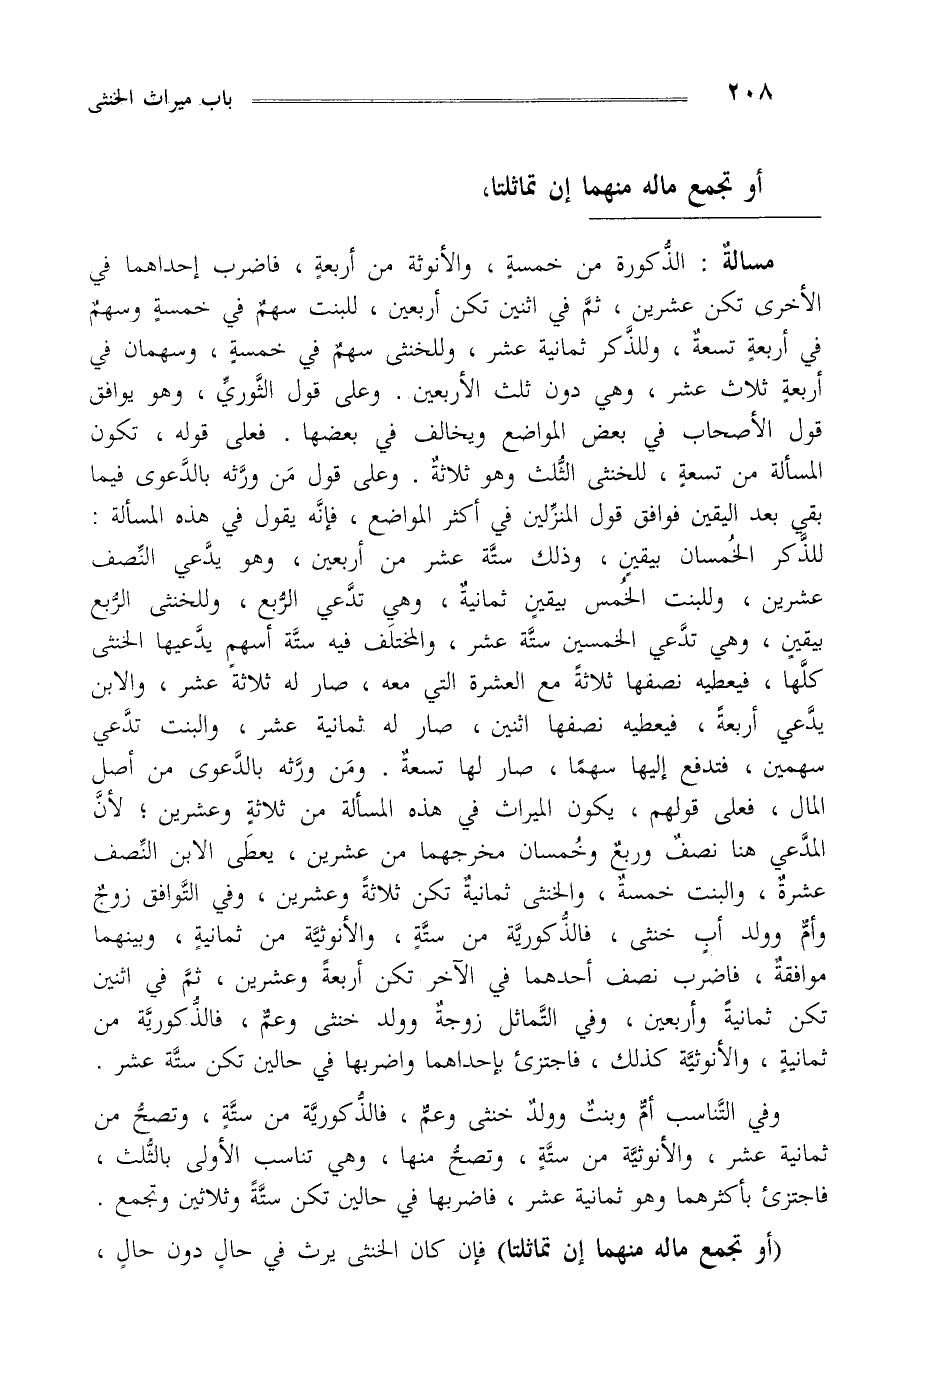 ٢٠٨ باب ميراث الخنثى
أو تجمع ماله منهما إن تماثلتا،
مسالةٌ : الذُّكورة من خمسةٍ ، والأنوثة من أربعةٍ ، فاضرب إحداهما في
الأخرى تكن عشرين ، ثمَّ في اثنين تكن أربعين ، للبنت سهمٌ في خمسةٍ وسهمٌ
في أربعةٍ تسعةٌ ، وللذَّكر ثمانية عشر ، وللخنثى سهمٌ في خمسةٍ ، وسهمان في
أربعةٍ ثلاث عشر ، وهي دون ثلث الأربعين . وعلى قول الثَّوريِّ ، وهو يوافق
قول الأصحاب في بعض المواضع ويخالف في بعضها . فعلى قوله ، تكون
المسألة من تسعةٍ ، للخنثى الثُّلث وهو ثلاثةٌ . وعلى قول مَن ورَّثه بالدَّعوى فيما
بقي بعد اليقين فوافق قول المنزِّلين في أكثر المواضع ، فإنَّه يقول في هذه المسألة :
للذَّكر الخُمسان بيقينٍ ، وذلك ستَّة عشر من أربعين ، وهو يدَّعي النِّصف
عشرين ، وللبنت الخُمس بيقينٍ ثمانيةٌ ، وهي تدَّعي الرُّبع ، وللخنثى الرُّبع
بيقينٍ ، وهي تدَّعي الخمسين ستَّة عشر ، والمختلَف فيه ستَّة أسهمٍ يدَّعيها الخنثى
كلَّها ، فيعطيه نصفها ثلاثةً مع العشرة التي معه ، صار له ثلاثة عشر ، والابن
يدَّعي أربعةً ، فيعطيه نصفها اثنين ، صار له ثمانية عشر ، والبنت تدَّعي
سهمين ، فتدفع إليها سهمًا ، صار لها تسعةٌ . ومَن ورَّثه بالدَّعوى من أصل
المال ، فعلى قولهم ، يكون الميراث في هذه المسألة من ثلاثةٍ وعشرين ؛ لأنَّ
المدَّعي هنا نصفٌ وربعٌ وخُمسان مخرجهما من عشرين ، يعطَى الابن النِّصف
عشرةٌ ، والبنت خمسةٌ ، والخنثى ثمانيةٌ تكن ثلاثةً وعشرين ، وفي التَّوافق زوجٌ
وأمٌّ وولد أبٍ خنثى ، فالذُّكوريَّة من ستَّةٍ ، والأنوثيَّة من ثمانيةٍ ، وبينهما
موافقةٌ ، فاضرب نصف أحدهما في الآخر تكن أربعةً وعشرين ، ثمَّ في اثنين
تكن ثمانيةً وأربعين ، وفي التَّماثل زوجةٌ وولد خنثى وعمٌّ ، فالذُّكوريَّة من
ثمانيةٍ ، والأنوثيَّة كذلك ، فاجتزئ بإحداهما واضربها في حالين تكن ستَّة عشر .
وفي التَّناسب أمٌّ وبنتٌ وولدٌ خنثى وعمٌّ ، فالذُّكوريَّة من ستَّةٍ ، وتصحُّ من
ثمانية عشر ، والأنوثيَّة من ستَّةٍ ، وتصحُّ منها ، وهي تناسب الأولى بالثُّلث ،
فاجتزئ بأكثرهما وهو ثمانية عشر ، فاضربها في حالين تكن ستَّةً وثلاثين وتجمع .
(أو تجمع ماله منهما إن تماثلتا) فإن كان الخنثى يرث في حالٍ دون حالٍ ،